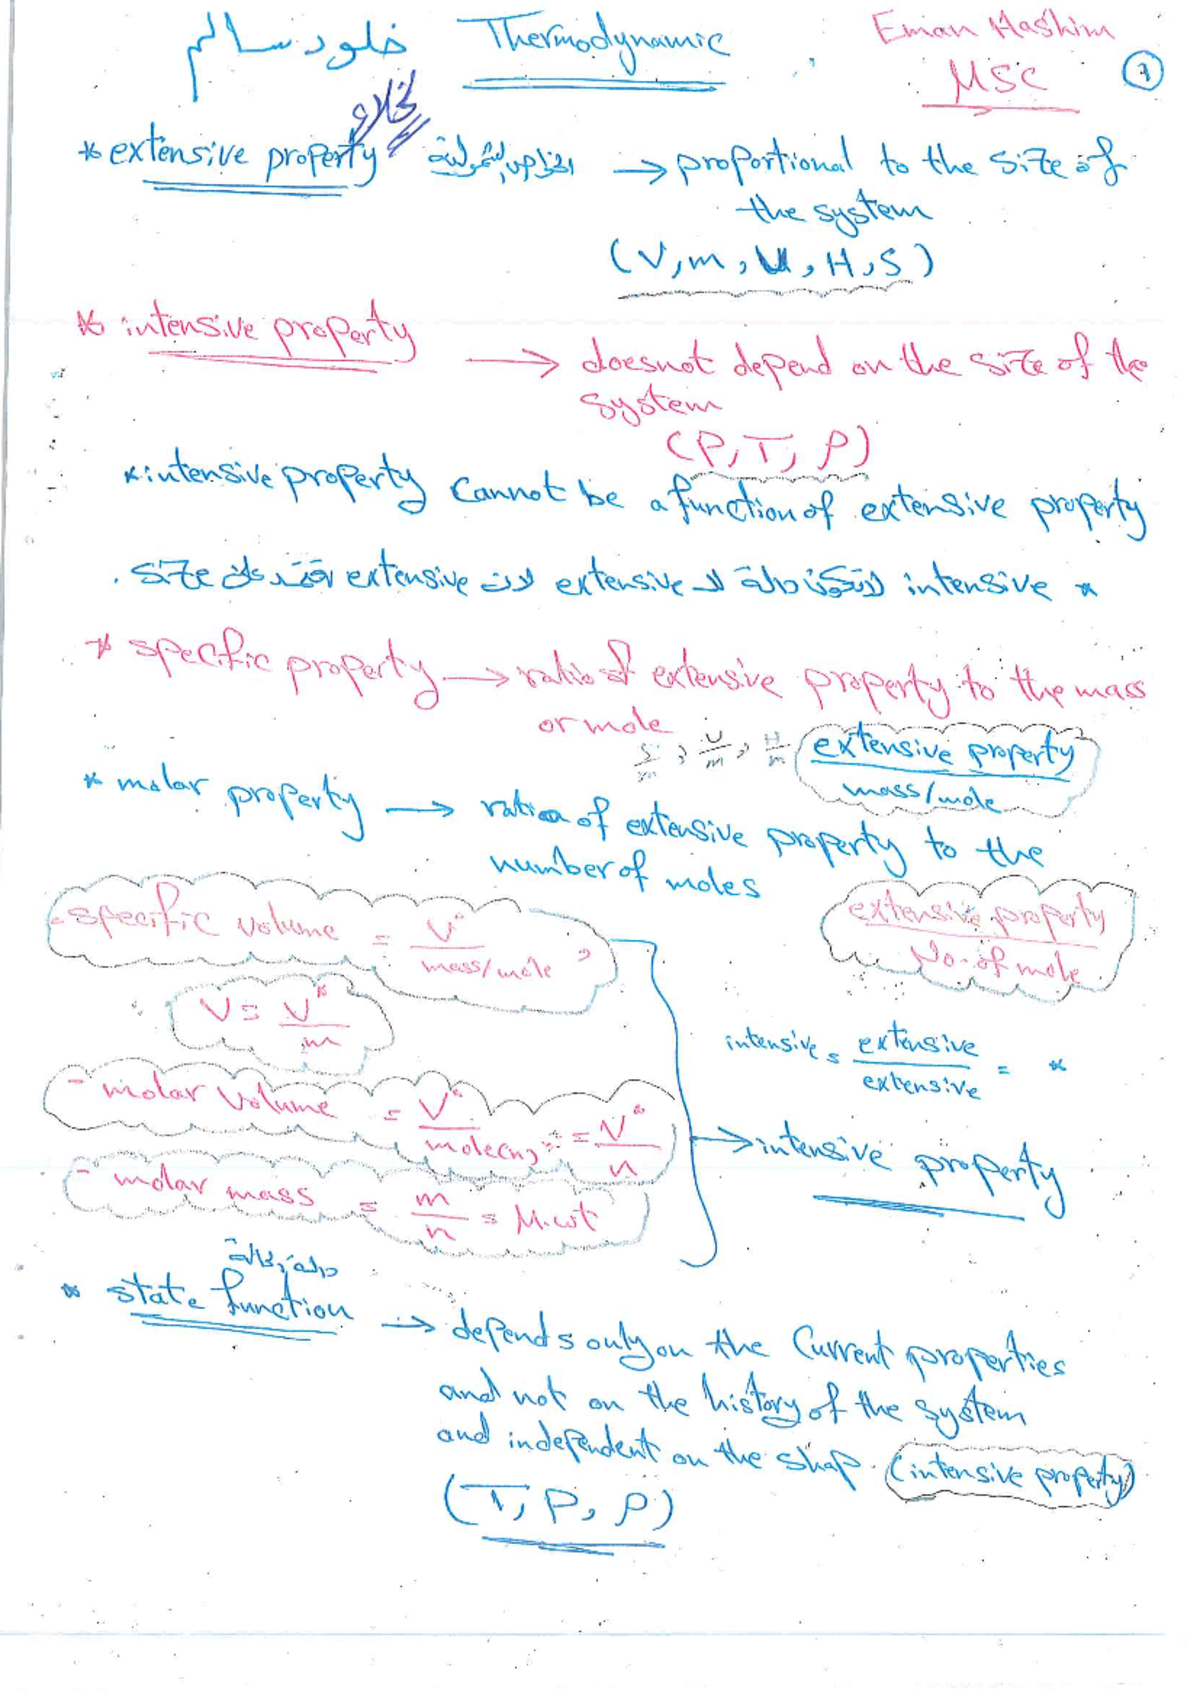 خلود سالم Thermodynamic Eman Hashim
MSC
* extensive property → proportional to the size of
the system
(V, m, U, H, S)
* intensive property → doesnot depend on the size of the
system
(P, T, ρ)
* intensive property cannot be a function of extensive property
* intensive لاتكون دالة لـ extensive لان extensive تعتمد على size .
* specific property → ratio of extensive property to the mass
or mole
S/m , U/m , H/m extensive property / mass/mole
* molar property → ratio of extensive property to the
number of moles
extensive property / No. of mole
- specific volume = V* / mass/mole ,
V = V* / m
intensive = extensive / extensive = *
- molar volume = V* / mole(n) = V* / n
→ intensive property
- molar mass = m / n = M.wt
دالة
* state function → depends only on the Current properties
and not on the history of the system
and independent on the shap. (intensive property)
(T, P, ρ)